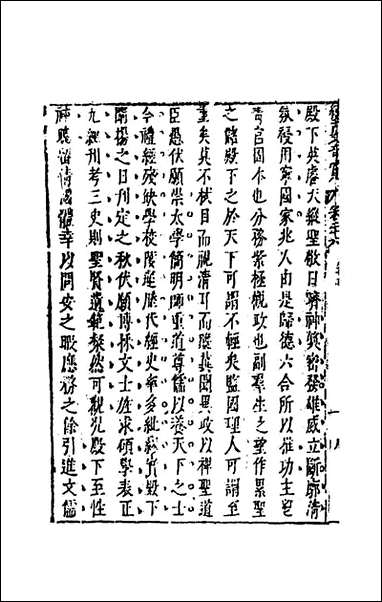 殿下英睿天縱聖敬日躋神襲密發雄威立斷廓清
氛祲用寧國家兆人由是歸德六合所以推功主鬯
青宫固本也分務紫極觀政也副羣生之望作累聖
之儲殿下之於天下可謂不輕矣監國理人可謂至
重矣莫不拭目而視清耳而聽冀聞異政以裨聖道
臣愚伏願崇太學簡明師重道尊儒以養天下之士
今禮經殘缺學校陵遲歷代經史率多紕繆實殿下
闡揚之日刊定之秋伏願博採文士旌求碩學表正
九經刊考三史則聖賢遺範粲然可觀况殿下至性
神聰留情國體幸以問安之暇應務之餘引進文儒